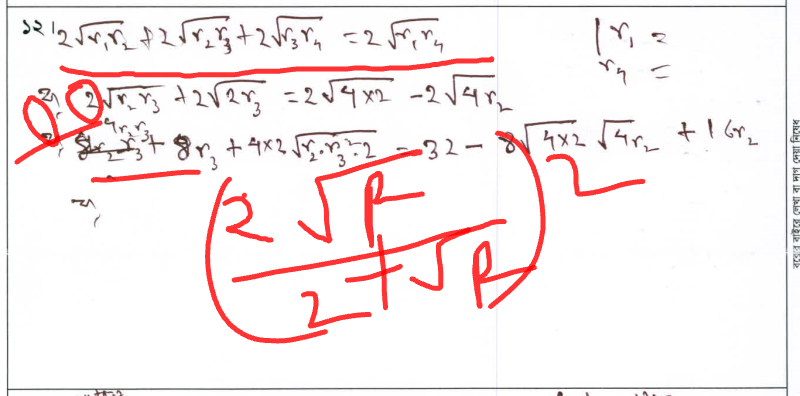 ১২। 2√r₁r₂ + 2√r₂r₃ + 2√r₃r₄ = 2√r₁r₄
r₁ =
r₄ =
বা, 2√r₂r₃ + 2√2r₃ = 2√4×2 - 2√4r₂
বা, 4r₂r₃ + 8r₃ + 4×2√r₂·r₃²·2 = 32 - 8√4×2 √4r₂ + 16r₂
বা,
(2√R / 2+√R)²
বক্সের বাইরে লেখা বা দাগ দেয়া নিষেধ